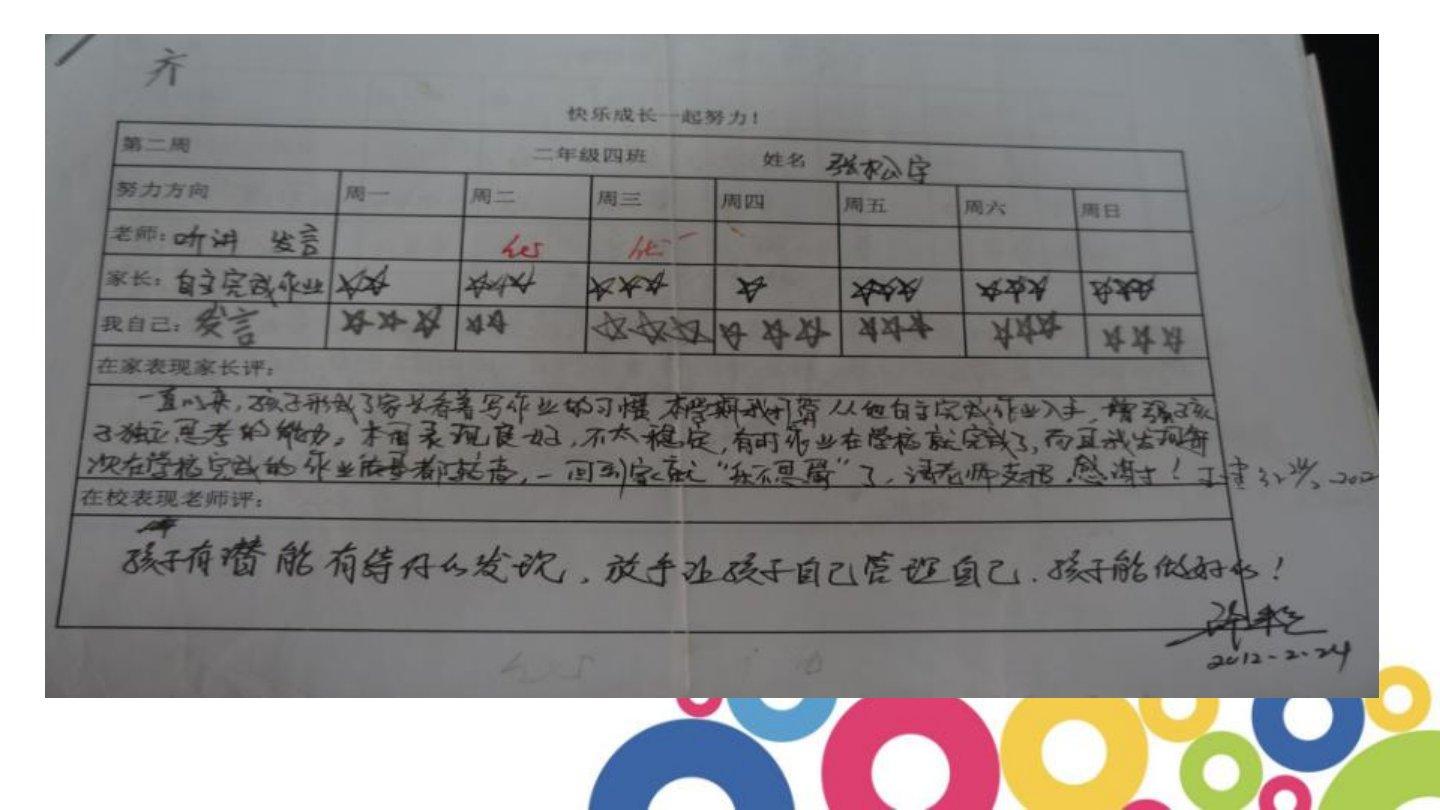 齐
快乐成长一起努力!
第二周 二年级四班 姓名 张松宇
努力方向 周一 周二 周三 周四 周五 周六 周日
老师:听讲 发言 yes
家长:自主完成作业 ☆☆ ☆☆☆ ☆☆☆ ☆ ☆☆☆ ☆☆☆ ☆☆☆
我自己:发言 ☆☆☆ ☆☆ ☆☆☆ ☆☆☆ ☆☆☆ ☆☆☆ ☆☆☆
在家表现家长评:
一直以来,孩子形成了家长看着写作业的习惯 本学期我们 从他自主完成作业入手,增强孩
子独立思考的能力。本周表现良好,不太稳定,有时作业在学校就完成了,而且我发现每
次在学校完成的作业 都,一回到家就“ ”了,请老师支招,感谢!
在校表现老师评:
孩子有潜能有待什么发现,放手让孩子自己管理自己.孩子能做好的!
2012-2-24